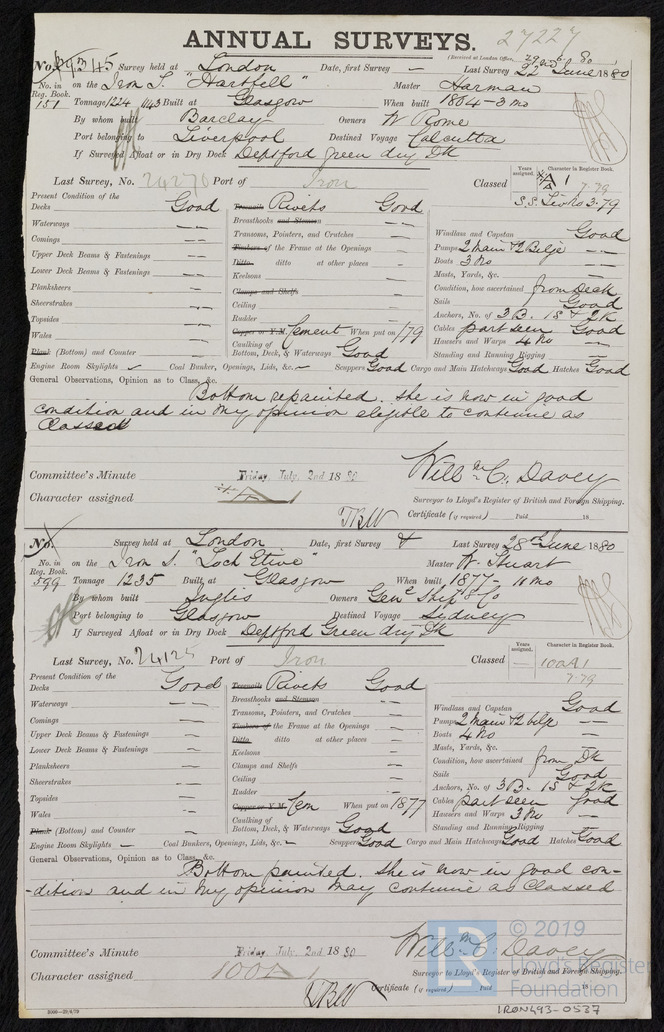 ANNUAL SURVEYS. 27227
(Received at London Office, 29 6 80)
No. 45 Survey held at London Date, first Survey — Last Survey 22 June 1880
No. in Reg. Book. 151 on the Iron S. "Hartfell" Master Harman
Tonnage 1224 1143 Built at Glasgow When built 1864 - 3 mo
By whom built Barclay Owners W Rome
Port belonging to Liverpool Destined Voyage Calcutta
If Surveyed Afloat or in Dry Dock Deptford Green dry Dk
Last Survey, No. 24270 Port of Iron Classed Years assigned. Character in Register Book. A 1 7.79
S.S. 3.79
Present Condition of the
Decks Good Treenails Rivets Good
Waterways — Breasthooks and Stemson — Windlass and Capstan Good
Comings — Transoms, Pointers, and Crutches — Pumps 2 Main & 2 Bilge —
Upper Deck Beams & Fastenings — Timbers of the Frame at the Openings — Boats 3 No —
Lower Deck Beams & Fastenings — Ditto ditto at other places — Masts, Yards, &c. —
Planksheers — Keelsons — Condition, how ascertained from Deck
Sheerstrakes — Clamps and Shelfs — Sails Good
Topsides — Ceiling — Anchors, No. of 3 B. 1 S & 2 K
Wales — Rudder — Cables part seen Good
Plank (Bottom) and Counter — Copper or Y.M. Cement When put on 1/79 Hawsers and Warps 4 No —
Caulking of Bottom, Deck, & Waterways Good Standing and Running Rigging —
Engine Room Skylights ✓ Coal Bunker, Openings, Lids, &c. — Scuppers Good Cargo and Main Hatchways Good Hatches Good
General Observations, Opinion as to Class, &c.
Bottom repainted. She is now in good
condition and in my opinion eligible to continue as
Classed
Committee's Minute Friday July 2nd 1880 Willm C. Davey
Character assigned A 1 Surveyor to Lloyd's Register of British and Foreign Shipping.
Certificate (if required) Paid 18
No. Survey held at London Date, first Survey & Last Survey 28th June 1880
No. in Reg. Book. 599 on the Iron S. "Loch Etive" Master W. Stuart
Tonnage 1235 Built at Glasgow When built 1877 - 11 mo
By whom built Inglis Owners Genl Ship & Co
Port belonging to Glasgow Destined Voyage Sydney
If Surveyed Afloat or in Dry Dock Deptford Green dry Dk
Last Survey, No. 24125 Port of Iron Classed Years assigned. — Character in Register Book. 100A1
7.79
Present Condition of the
Decks Good Treenails Rivets Good
Waterways — Breasthooks and Stemson — Windlass and Capstan Good
Comings — Transoms, Pointers, and Crutches — Pumps 2 Main & 2 bilge —
Upper Deck Beams & Fastenings — Timbers of the Frame at the Openings — Boats 4 No —
Lower Deck Beams & Fastenings — Ditto ditto at other places — Masts, Yards, &c. —
Planksheers — Keelsons — Condition, how ascertained from Dk
Sheerstrakes — Clamps and Shelfs — Sails Good
Topsides — Ceiling — Anchors, No. of 3 B. 1 S & 2 K
Wales — Rudder — Cables part seen Good
Plank (Bottom) and Counter — Copper or Y.M. Cem When put on 1877 Hawsers and Warps 3 No —
Caulking of Bottom, Deck, & Waterways Good Standing and Running Rigging —
Engine Room Skylights — Coal Bunkers, Openings, Lids, &c. — Scuppers Good Cargo and Main Hatchways Good Hatches Good
General Observations, Opinion as to Class, &c.
Bottom painted. She is now in good con-
-dition and in my opinion may continue as Classed
Committee's Minute Friday July 2nd 1880 Willm C. Davey
Character assigned 100A1 Surveyor to Lloyd's Register of British and Foreign Shipping.
Certificate (if required) Paid 18
© 2019
Lloyd's Register
Foundation
IRON493-0537